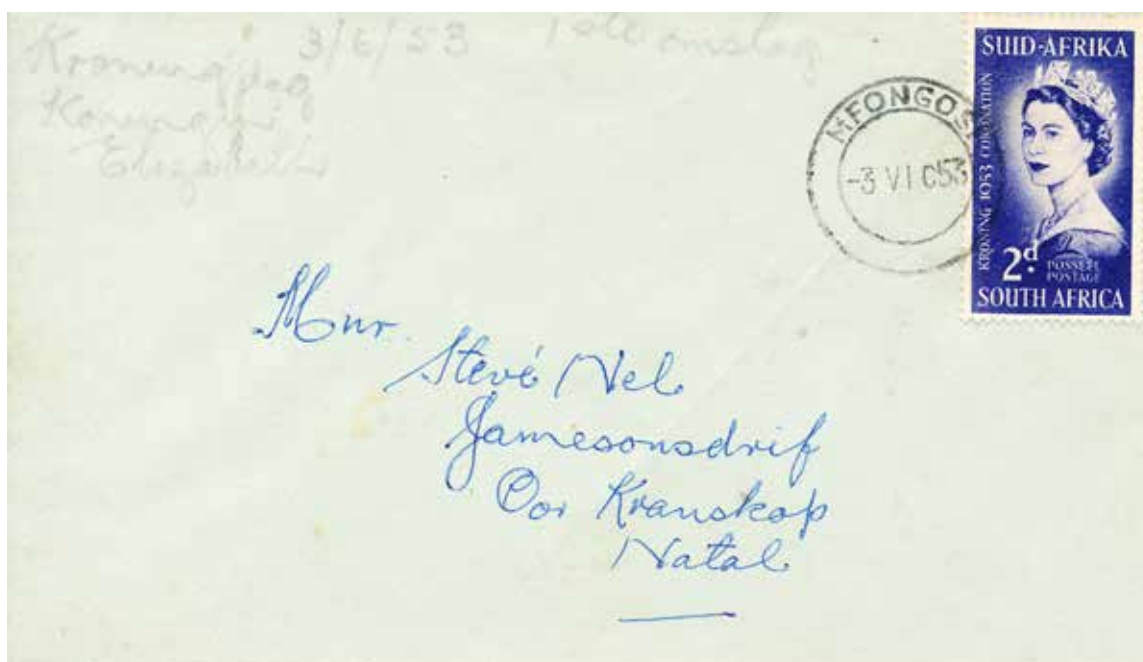 3/6/53 1ste omslag
Kroning dag
Koningin
Elizabeth
MFONGOSI
-3 VI C53
SUID-AFRIKA
KRONING 1953 CORONATION
2d.
POSSEËL
POSTAGE
SOUTH AFRICA
Mnr.
Stevé Nel
Jamesonsdrif
Oor Kranskop
Natal